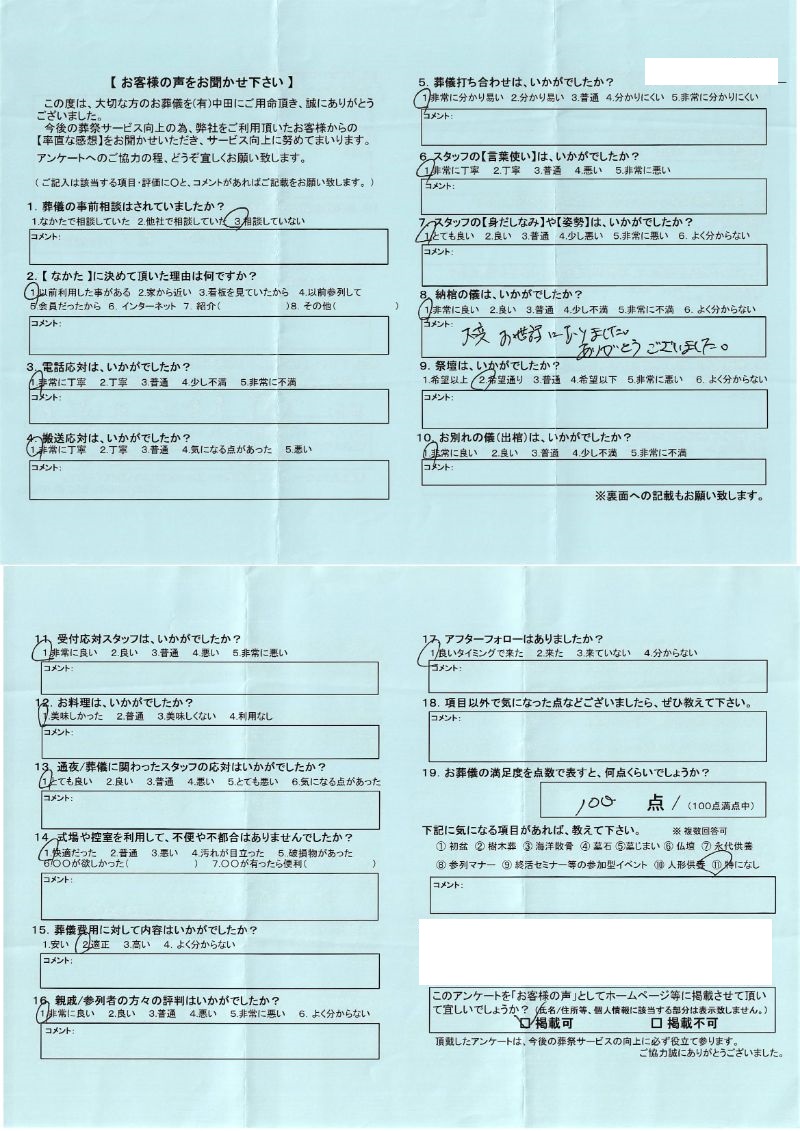 【 お客様の声をお聞かせ下さい 】
この度は、大切な方のお葬儀を(有)中田にご用命頂き、誠にありがとう
ございました。
今後の葬祭サービス向上の為、弊社をご利用頂いたお客様からの
【率直な感想】をお聞かせいただき、サービス向上に努めてまいります。
アンケートへのご協力の程、どうぞ宜しくお願い致します。
( ご記入は該当する項目・評価に〇と、コメントがあればご記載をお願い致します。 )
1. 葬儀の事前相談はされていましたか?
1.なかたで相談していた 2.他社で相談していた 3.相談していない
コメント:
2.【 なかた 】に決めて頂いた理由は何ですか?
1.以前利用した事がある 2.家から近い 3.看板を見ていたから 4.以前参列して
5.会員だったから 6. インターネット 7. 紹介( )8. その他( )
コメント:
3. 電話応対は、いかがでしたか?
1.非常に丁寧 2.丁寧 3.普通 4.少し不満 5.非常に不満
コメント:
4. 搬送応対は、いかがでしたか?
1.非常に丁寧 2.丁寧 3.普通 4.気になる点があった 5.悪い
コメント:
5. 葬儀打ち合わせは、いかがでしたか?
1.非常に分かり易い 2.分かり易い 3.普通 4.分かりにくい 5.非常に分かりにくい
コメント:
6. スタッフの【言葉使い】は、いかがでしたか?
1.非常に丁寧 2.丁寧 3.普通 4.悪い 5.非常に悪い
コメント:
7. スタッフの【身だしなみ】や【姿勢】は、いかがでしたか?
1.とても良い 2.良い 3.普通 4.少し悪い 5.非常に悪い 6. よく分からない
コメント:
8. 納棺の儀は、いかがでしたか?
1.非常に良い 2.良い 3.普通 4.少し不満 5.非常に不満 6. よく分からない
コメント:
大変 お世話になりました。
ありがとうございました。
9. 祭壇は、いかがでしたか?
1.希望以上 2.希望通り 3.普通 4.希望以下 5.非常に悪い 6. よく分からない
コメント:
10. お別れの儀(出棺)は、いかがでしたか?
1.非常に良い 2.良い 3.普通 4.少し不満 5.非常に不満
コメント:
※裏面への記載もお願い致します。
11. 受付応対スタッフは、いかがでしたか?
1.非常に良い 2.良い 3.普通 4.悪い 5.非常に悪い
コメント:
12. お料理は、いかがでしたか?
1.美味しかった 2.普通 3.美味しくない 4.利用なし
コメント:
13. 通夜/葬儀に関わったスタッフの応対はいかがでしたか?
1.とても良い 2.良い 3.普通 4.悪い 5.とても悪い 6.気になる点があった
コメント:
14. 式場や控室を利用して、不便や不都合はありませんでしたか?
1.快適だった 2.普通 3.悪い 4.汚れが目立った 5.破損物があった
6.〇〇が欲しかった( ) 7.〇〇が有ったら便利( )
コメント:
15. 葬儀費用に対して内容はいかがでしたか?
1.安い 2.適正 3.高い 4. よく分からない
コメント:
16. 親戚/参列者の方々の評判はいかがでしたか?
1.非常に良い 2.良い 3.普通 4.悪い 5.非常に悪い 6. よく分からない
コメント:
17. アフターフォローはありましたか?
1.良いタイミングで来た 2.来た 3.来ていない 4.分からない
コメント:
18. 項目以外で気になった点などございましたら、ぜひ教えて下さい。
コメント:
19. お葬儀の満足度を点数で表すと、何点くらいでしょうか?
100 点 (100点満点中)
下記に気になる項目があれば、教えて下さい。 ※ 複数回答可
① 初盆 ② 樹木葬 ③ 海洋散骨 ④ 墓石 ⑤墓じまい ⑥ 仏壇 ⑦ 永代供養
⑧ 参列マナー ⑨ 終活セミナー等の参加型イベント ⑩ 人形供養 ⑪ 特になし
コメント:
このアンケートを「お客様の声」としてホームページ等に掲載させて頂い
て宜しいでしょうか? (氏名/住所等、個人情報に該当する部分は表示致しません。)
☐ 掲載可 ☐ 掲載不可
頂戴したアンケートは、今後の葬祭サービスの向上に必ず役立て参ります。
ご協力誠にありがとうございました。